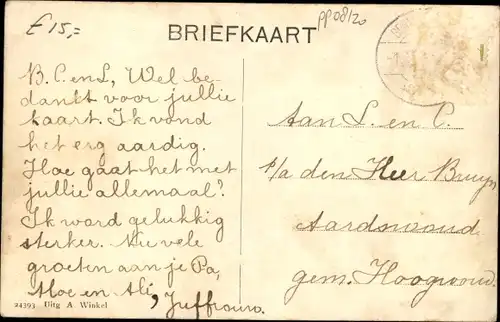 £ 15,=
PP08/20
BRIEFKAART
B. C. en L, Wel be-
dankt voor jullie
kaart. Ik vond
het erg aardig.
Hoe gaat het met
jullie allemaal?
Ik word gelukkig
sterker. Nu vele
groeten aan je Pa,
Moe en Ali, Juffrouw.
24393 Uitg A Winkel
Aan L. en C.
p/a den Heer Bruyn
Aardswoud
gem. Hoogwoud.